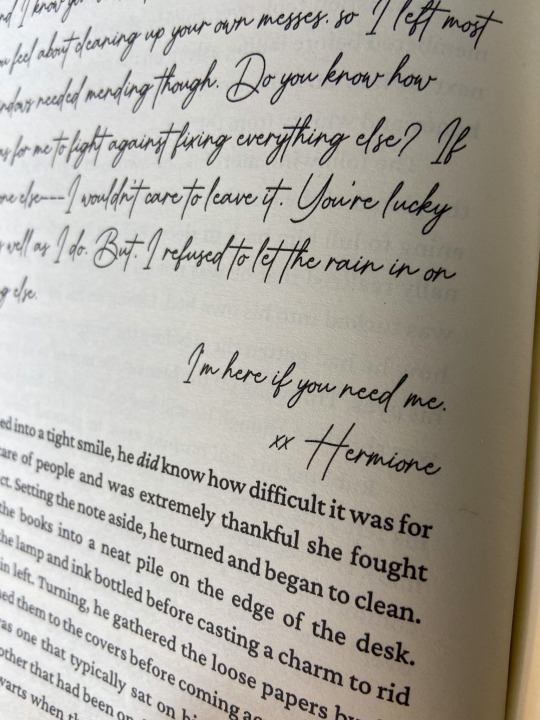 nd I know you
ou feel about cleaning up your own messes. so I left most
ndows needed mending though. Do you know how
as for me to fight against fixing everything else? If
one else---I wouldn't care to leave it. You're lucky
s well as I do. But. I refused to let the rain in on
g else.
I'm here if you need me.
xx Hermione
ed into a tight smile, he did know how difficult it was for
are of people and was extremely thankful she fought
ct. Setting the note aside, he turned and began to clean.
the books into a neat pile on the edge of the desk.
the lamp and ink bottled before casting a charm to rid
in left. Turning, he gathered the loose papers
ed them to the covers before coming
as one that typically sat on
other that had been on
warts when